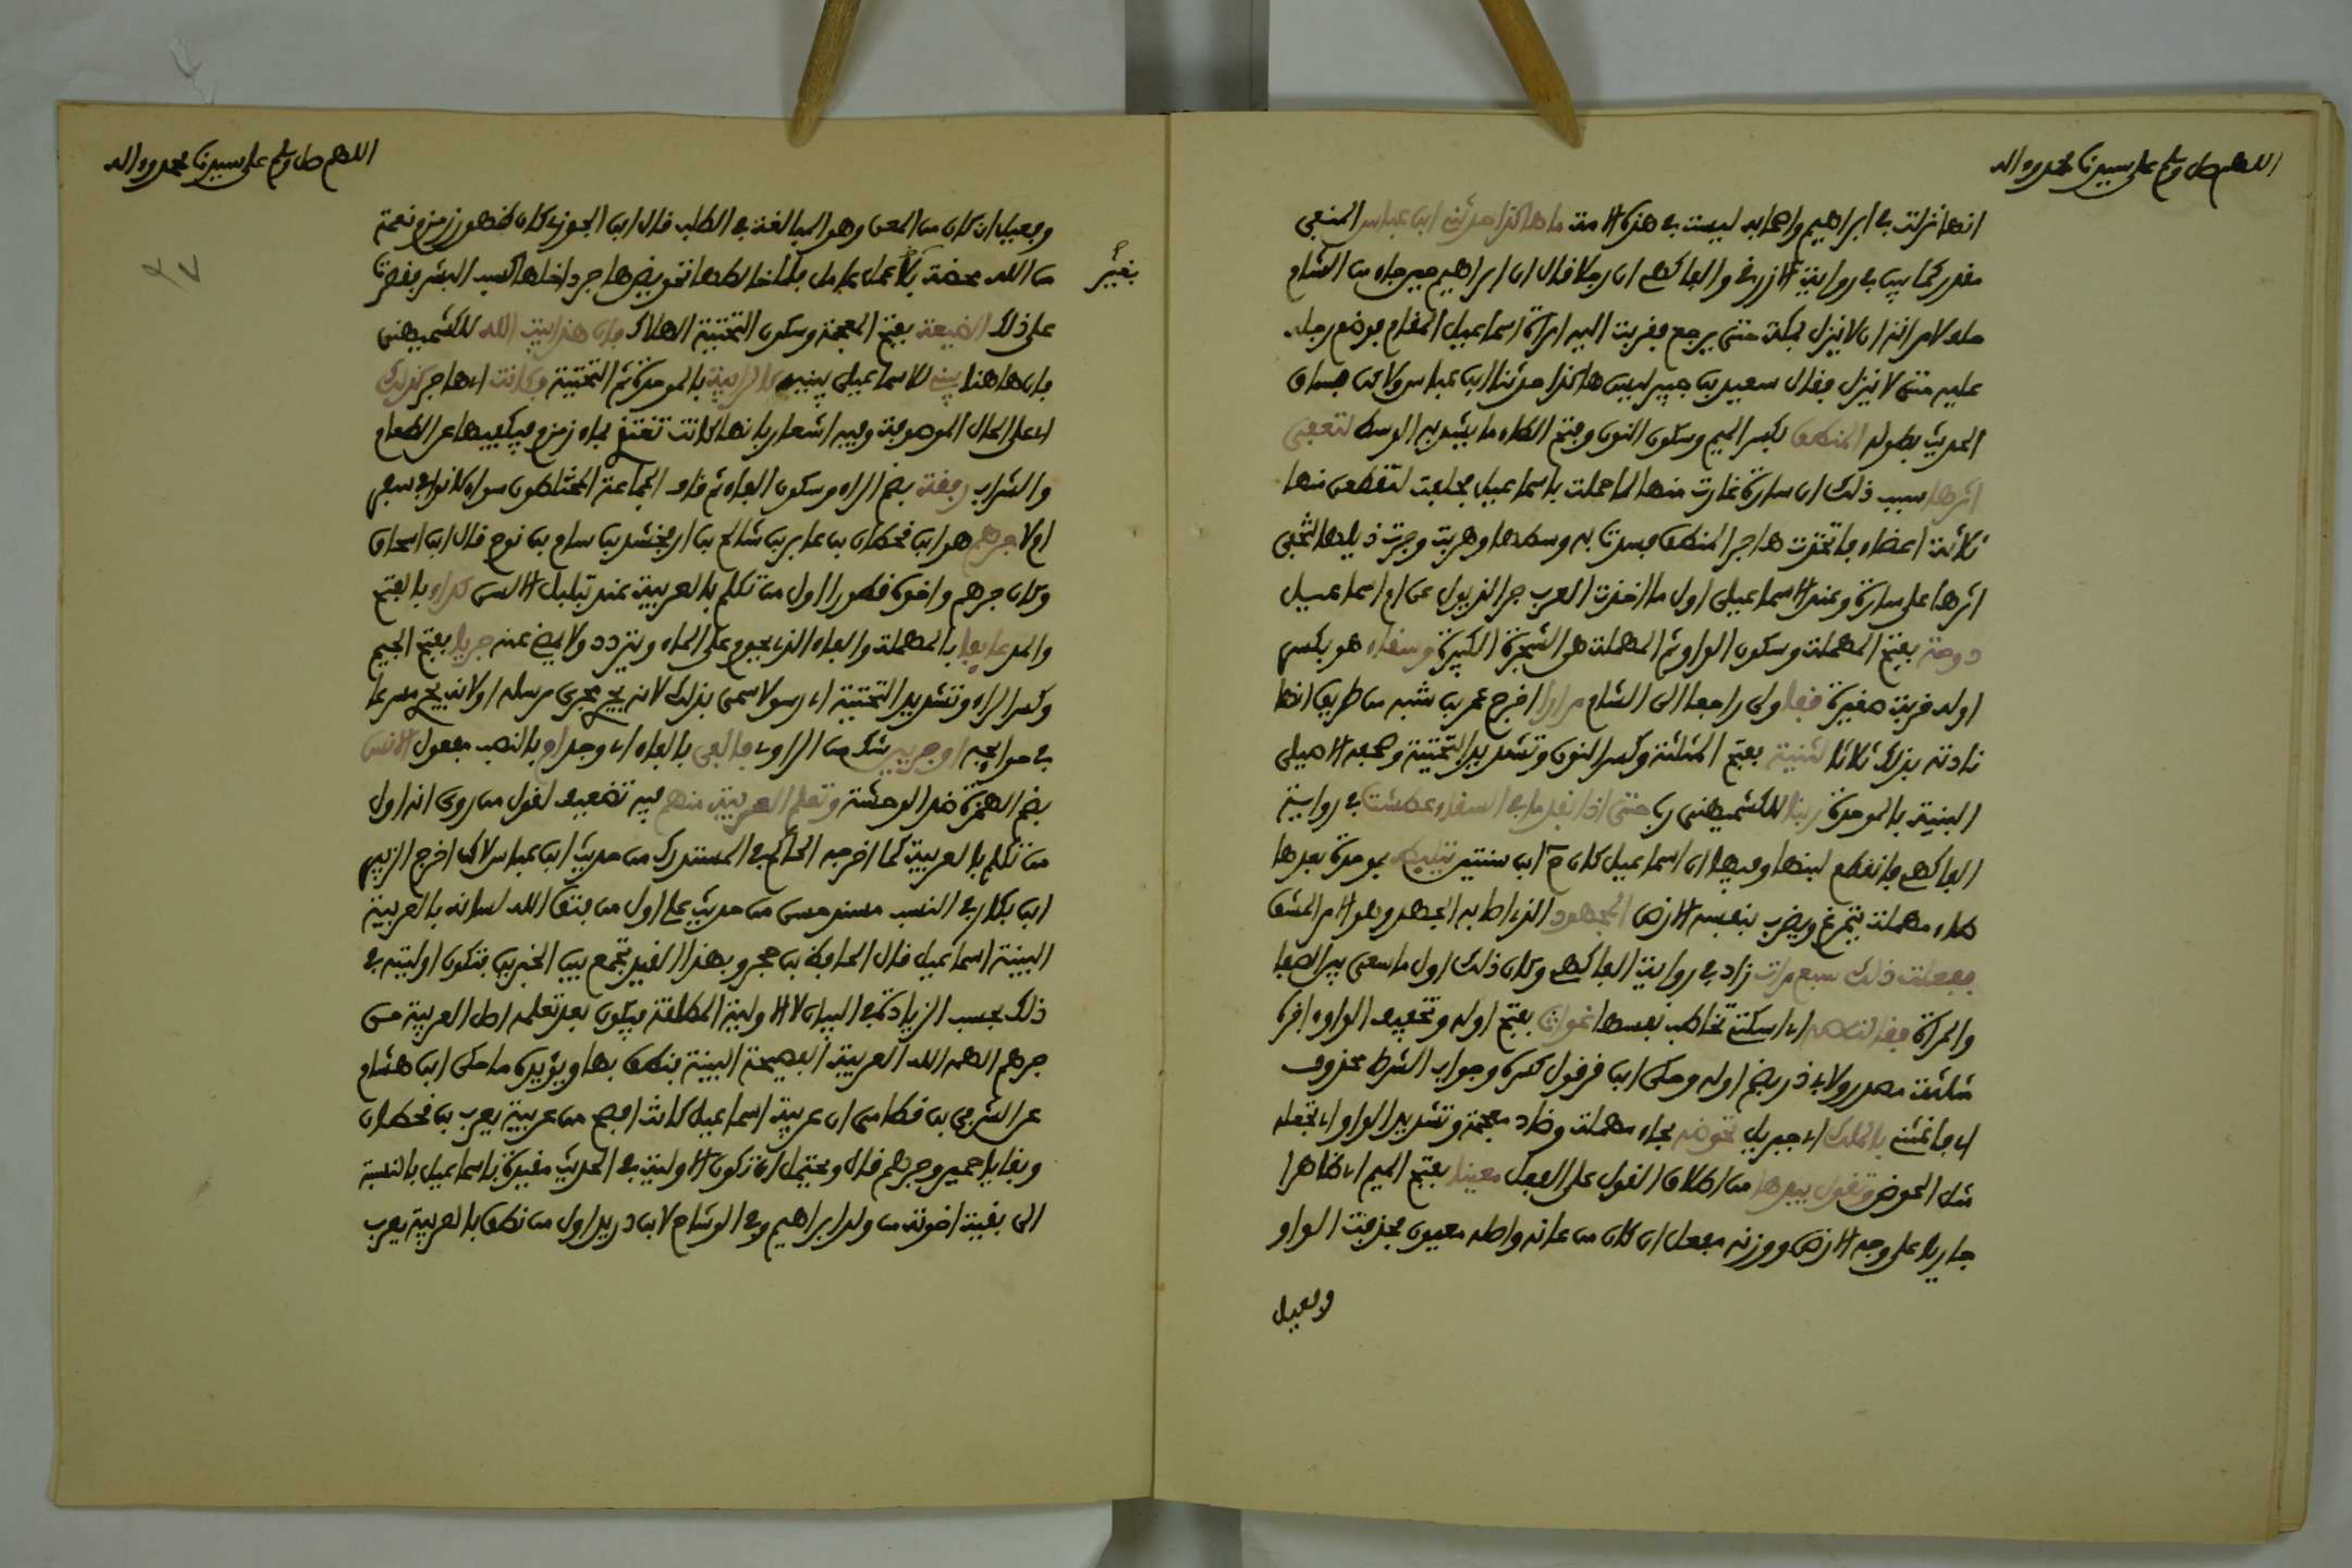 اللهم صل وسلم على سيدنا محمد وءاله
انها نزلت في ابراهيم واصحابه ليست في هذه الامة ما هاكذا حدثني ابن عباس المنفي
مقدر كما بين في رواية الازرقي والفاكهي ان رجلا قال ان ابراهيم حين جاء من الشام
حلف لامراته ان لا ينزل بمكة حتى يرجع فقربت اليه امراة اسماعيل المقام فوضع رجله
عليه حتى لا ينزل فقال سعيد بن جبير ليس هاكذا حدثنا ابن عباس ولاكن فساق
الحديث بطوله المنطق بكسر الميم وسكون النون وفتح الطاء ما يشد به الوسط لتعفي
اثرها سبب ذلك ان سارة غارت منها لما حملت باسماعيل فحلفت لتقطعن منها
ثلاثة اعضاء فاتخذت هاجر المنطق فشدت به وسطها وهربت وجرت ذيلها لتخفي
اثرها على سارة وعند الاسماعيلي اول ما اتخذت العرب جر الذيول عن ام اسماعيل
دوحة بفتح المهملة وسكون الواو ثم المهملة هو الشجرة الكبيرة وسقاء هو بكسر
اوله قربة صغيرة قفا ولى راجعا الى الشام مرارا اخرج عمر بن شبه من طريق انها
نادته بذلك ثلاثا الثنية بفتح المثلثة وكسر النون وتشديد التحتية وصحفه الاصيلي
البنية بالموحدة ربنا للكشميهني رب حتى اذا نفد ما في السقاء عطشت في رواية
الفاكهي فانقطع لبنها وفيها ان اسماعيل كان ح ابن سنتين يتلبط بموحدة بعدها
طاء مهملة يتمرغ ويضرب بنفسه الارض المجهود الذي اصابه الجهد وهو الامر المشق
ففعلت ذلك سبع مرات زاد في رواية الفاكهي وكان ذلك اول ما سعي بين الصفا
والمروة فقالت صه اي اسكتي تخاطب نفسها غواث بفتح اوله وتخفيف الواو ءاخره
مثلثة مصدر ولابي ذر بضم اوله وحكى ابن قرقول كسره وجواب الشرط محذوف
اي فاغثني بالملك اي جبريل تحوضه بحاء مهملة وضاد معجمة وتشديد الواو اي تجعله
مثل الحوض وتقول بيدها من اطلاق القول على الفعل معينا بفتح الميم اي ظاهرا
جاريا على وجه الارض ووزنه مفعل ان كان من عانه واصله معيون فحذفت الواو
وفعيل
اللهم صل وسلم على سيدنا محمد وءاله
وفعيل ان كان من المعن وهو المبالغة في الطلب قال ابن الجوزي كان ظهور زمزم نعمة
من الله محضة بلا عمل عامل فلما خالطها تحويض هاجر داخلها كسب البشر فقصرت
بغير
على ذلك الضيعة بفتح المعجمة وسكون التحتية الهلاك فان هذا بيت الله للكشميهني
فان هاهنا يبني للاسماعيلي يبنيه كالرابية بالموحدة ثم التحتية وكانت اي هاجر كذلك
اي على الحال الموصوفة وفيه اشعار بانها كانت تغتذي بماء زمزم فيكفيها عن الطعام
والشراب رفقة بضم الراء وسكون الفاء ثم قاف الجماعة المختلطون سواء كانوا في سفر
ام لا جرهم هو ابن قحطان بن عابر بن شالخ بن ارفخشد بن سام بن نوح قال ابن اسحاق
وكان جرهم واخوه قطورا اول من تكلم بالعربية عند تبلبل الالسن كداء بالفتح
والمد عايفا بالمهملة والفاء الذي يحوم على الماء ويتردد ولا يمضي عنه جريا بفتح الجيم
وكسر الراء وتشديد التحتية اي رسولا سمى بذلك لانه يجري مجرى مرسله او لانه يجري مسرعا
في حوايجه او جريين شك من الراوي فالفى بالفاء اي وجد ام بالنصب مفعول الانس
بضم الهمزة ضد الوحشة وتعلم العربية منهم فيه تضعيف لقول من روى انه اول
من تكلم بالعربية كما اخرجه الحاكم في المستدرك من حديث ابن عباس لاكن اخرج الزبير
ابن بكار في النسب بسند حسن من حديث علي اول من فتق الله لسانه بالعربية
البينة اسماعيل قال الحافظ بن حجر وبهذا القيد يجمع بين الخبرين فتكون اوليته في
ذلك بحسب الزيادة في البيان لا الاولية المطلقة فيكون بعد تعلمه اصل العربية من
جرهم الهمه الله العربية الفصيحة البينة فنطق بها ويؤيده ما حكى ابن هشام
عن الشرقي بن قطامي ان عربية اسماعيل كانت افصح من عربية يعرب بن قحطان
وبقايا حمير وجرهم قال ويحتمل ان تكون الاولية في الحديث مقيدة باسماعيل بالنسبة
الى بقية اخوته من ولد ابراهيم وفي الوشاح لابن دريد اول من نطق بالعربية يعرب